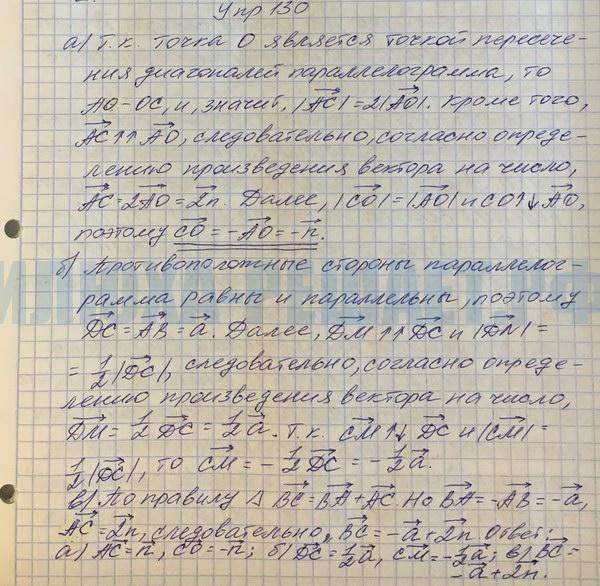 Упр 130
а) Т.к. точка O является точкой пересече-
ния диагоналей параллелограмма, то
AO-OC, и, значит, |AC|=2|AO|. Кроме того,
AC↑↑AO, следовательно, согласно опреде-
лению произведения вектора на число,
AC=2AO=2n. Далее, |CO|=|AO| и CO↑↓AO,
поэтому CO=-AO=-n.
б) Противоположные стороны параллелог-
рамма равны и параллельны, поэтому
DC=AB=a. Далее, DM↑↑DC и |DM|=
=1/2|DC|, следовательно, согласно опреде-
лению произведения вектора на число,
DM=1/2DC=1/2a. Т.к. CM↑↓DC и |CM|=
1/2|DC|, то CM=-1/2DC=-1/2a.
в) По правилу Δ BC=BA+AC. Но BA=-AB=-a,
AC=2n, следовательно, BC=-a+2n. Ответ:
а) AC=n, CO=-n; б) DC=1/2a, CM=-1/2a; в) BC=
-a+2n.